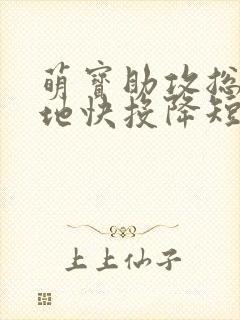 萌寶助攻总
地快投降短
上上仙子